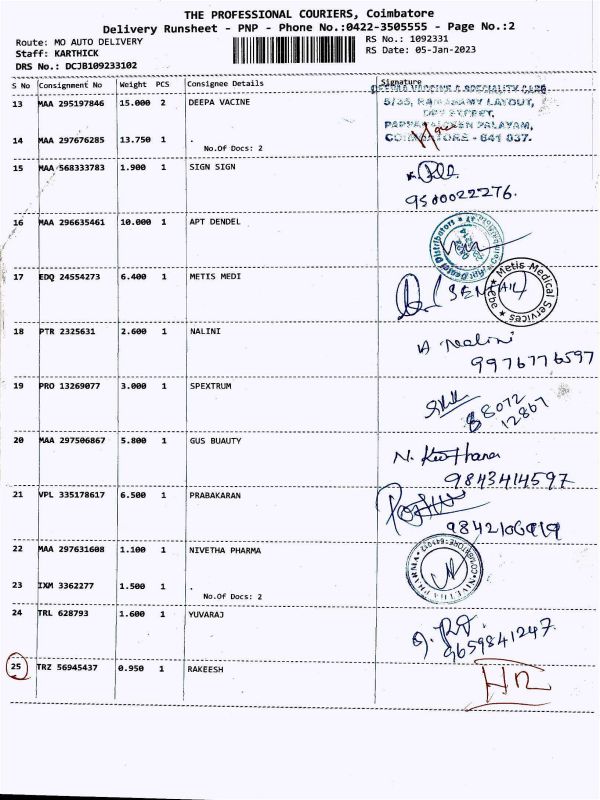 THE PROFESSIONAL COURIERS, Coimbatore
Delivery Runsheet - PNP - Phone No.:0422-3505555 - Page No.:2
Route: MO AUTO DELIVERY
RS No.: 1092331
Staff: KARTHICK
RS Date: 05-Jan-2023
DRS No.: DCJB109233102
S No Consignment No Weight PCS Consignee Details Signature
13 MAA 295197846 15.000 2 DEEPA VACINE
5/35, RAMASAMY LAYOUT,
COIMBATORE - 641 037.
14 MAA 297676285 13.750 1 .
No.Of Docs: 2
15 MAA 568333783 1.900 1 SIGN SIGN
9500022276.
16 MAA 296635461 10.000 1 APT DENDEL
17 EDQ 24554273 6.400 1 METIS MEDI
Metis Medical Services
18 PTR 2325631 2.600 1 NALINI
Nalini
9976776597
19 PRO 13269077 3.000 1 SPEXTRUM
88072
12867
20 MAA 297506867 5.800 1 GUS BUAUTY
9843414597
21 VPL 335178617 6.500 1 PRABAKARAN
22 MAA 297631608 1.100 1 NIVETHA PHARMA
NIVETHA PHARMA
23 IXM 3362277 1.500 1 .
No.Of Docs: 2
24 TRL 628793 1.600 1 YUVARAJ
9659841247
25 TRZ 56945437 0.950 1 RAKEESH